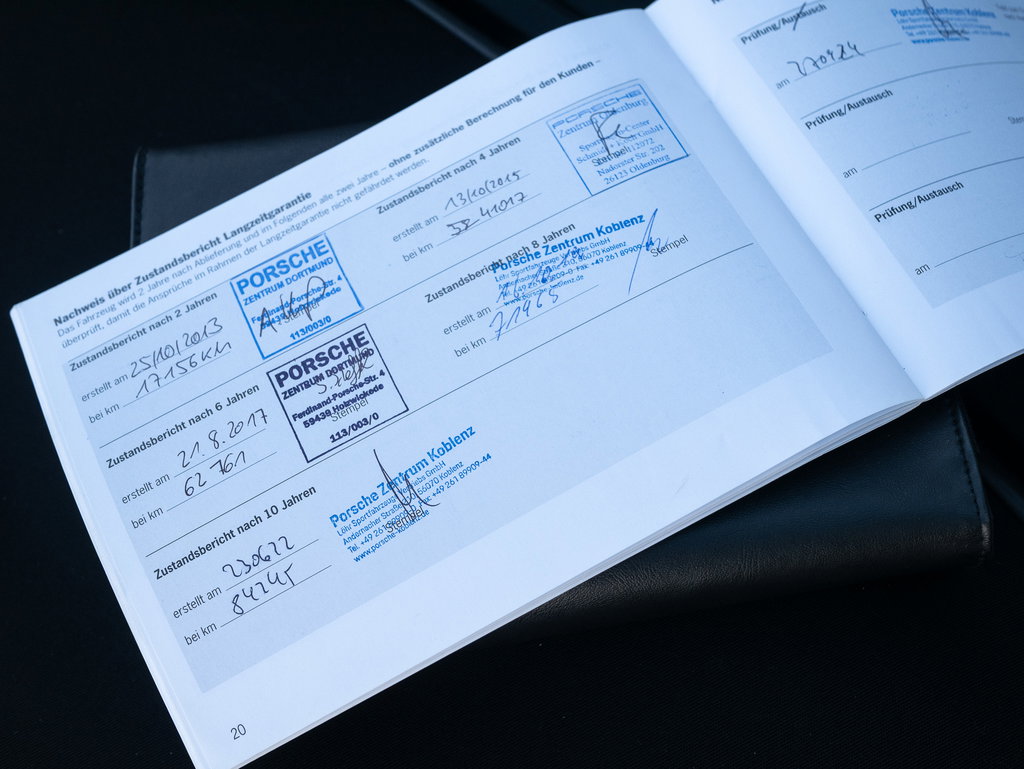 Nachweis über Zustandsbericht Langzeitgarantie
Das Fahrzeug wird 2 Jahre nach Ablieferung und im Folgenden alle zwei Jahre – ohne zusätzliche Berechnung für den Kunden –
überprüft, damit die Ansprüche im Rahmen der Langzeitgarantie nicht gefährdet werden.
Zustandsbericht nach 2 Jahren
erstellt am 25/10/2013
bei km 17156KM
PORSCHE
ZENTRUM DORTMUND
Ferdinand-Porsche-Str. 4
59439 Holzwickede
Stempel
113/003/0
Zustandsbericht nach 4 Jahren
erstellt am 13/10/2015
bei km 41017
PORSCHE
Zentrum Oldenburg
Stempel
Nadorster Str. 202
26123 Oldenburg
Zustandsbericht nach 6 Jahren
erstellt am 21.8.2017
bei km 62761
PORSCHE
ZENTRUM DORTMUND
Ferdinand-Porsche-Str. 4
59439 Holzwickede
Stempel
113/003/0
Zustandsbericht nach 8 Jahren
erstellt am
bei km 71965
Porsche Zentrum Koblenz
Löhr Sportfahrzeug Vertriebs GmbH
56070 Koblenz
Fax +49 261 89909-44
www.porsche-koblenz.de
Stempel
Zustandsbericht nach 10 Jahren
erstellt am 230622
bei km 84245
Porsche Zentrum Koblenz
Löhr Sportfahrzeug Vertriebs GmbH
Andernacher Straße 56070 Koblenz
Tel. +49 261 Fax +49 261 89909-44
www.porsche-koblenz.de
Stempel
20
Prüfung/Austausch
am 270424
Porsche Zentrum Koblenz
Prüfung/Austausch
am
Prüfung/Austausch
am